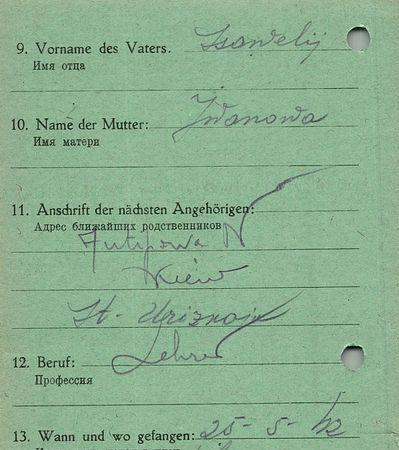 9. Vorname des Vaters.
Имя отца
10. Name der Mutter: Iwanowa
Имя матери
11. Anschrift der nächsten Angehörigen:
Адрес ближайших родственников
Kiew
St-
12. Beruf: Lehrer
Профессия
13. Wann und wo gefangen: 25-5-42